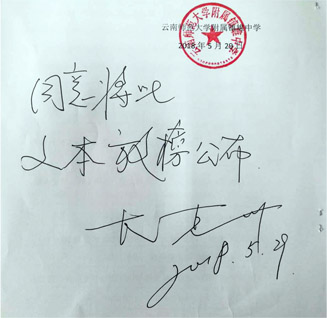 云南师范大学附属 中学
2018年5月29日
同意将此
文本放榜公布
2018.5.29